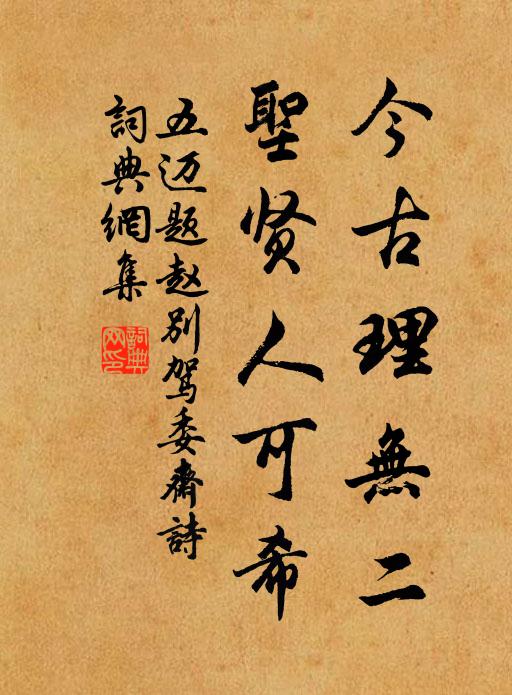 今古理無二
聖贤人可希
五迈题赵别駕委齋詩
詞典網集
詞典網印